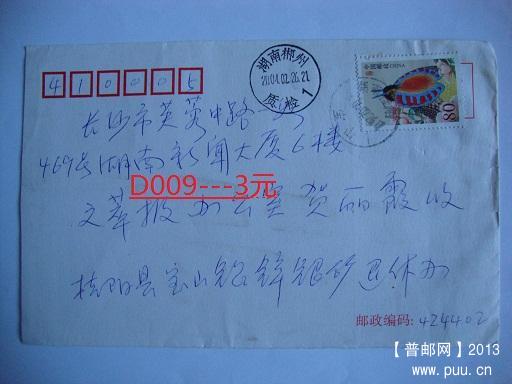 410005
湖南郴州
2004.02.26.21
质检
1
中国邮政 CHINA
80
长沙市芙蓉中路一
469号湖南新闻大厦6楼
D009---3元
文萃报办公室贺丽霞收
桂阳县宝山铅锌银矿退休办
邮政编码: 424402
【普邮网】2013
www.puu.cn